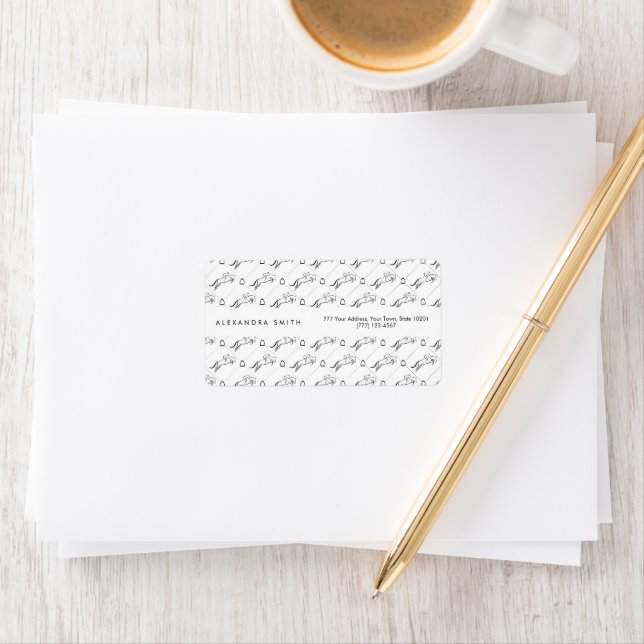 ALEXANDRA SMITH
777 Your Address, Your Town, State 10201
(777) 123-4567